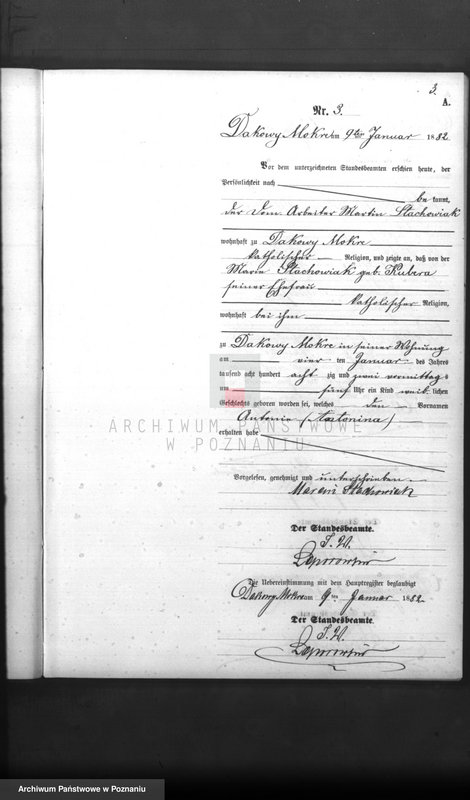 3.
A.
Nr. 3.
Dakowy Mokre am 9ten Januar 1882
Vor dem unterzeichneten Standesbeamten erschien heute, der
Persönlichkeit nach
be kannt,
der Dom. Arbeiter Martin Stachowiak
wohnhaft zu Dakowy Mokre
katholischer Religion, und zeigte an, daß von der
Marie Stachowiak geb. Kubera
seiner Ehefrau
katholischer Religion,
wohnhaft bei ihm
zu Dakowy Mokre in seiner Wohnung
am vier ten Januar des Jahres
tausend acht hundert acht zig und zwei vormittags
um fünf Uhr ein Kind weib lichen
Geschlechts geboren worden sei, welches den Vornamen
Antonie (Antonina)
erhalten habe
ARCHIWUM PAŃSTWOWE
W POZNANIU
Vorgelesen, genehmigt und unterschrieben
Marcin Stachowiak
Der Standesbeamte.
Die Uebereinstimmung mit dem Hauptregister beglaubigt
Dakowy Mokre am 9ten Januar 1882.
Der Standesbeamte.
Archiwum Państwowe w Poznaniu